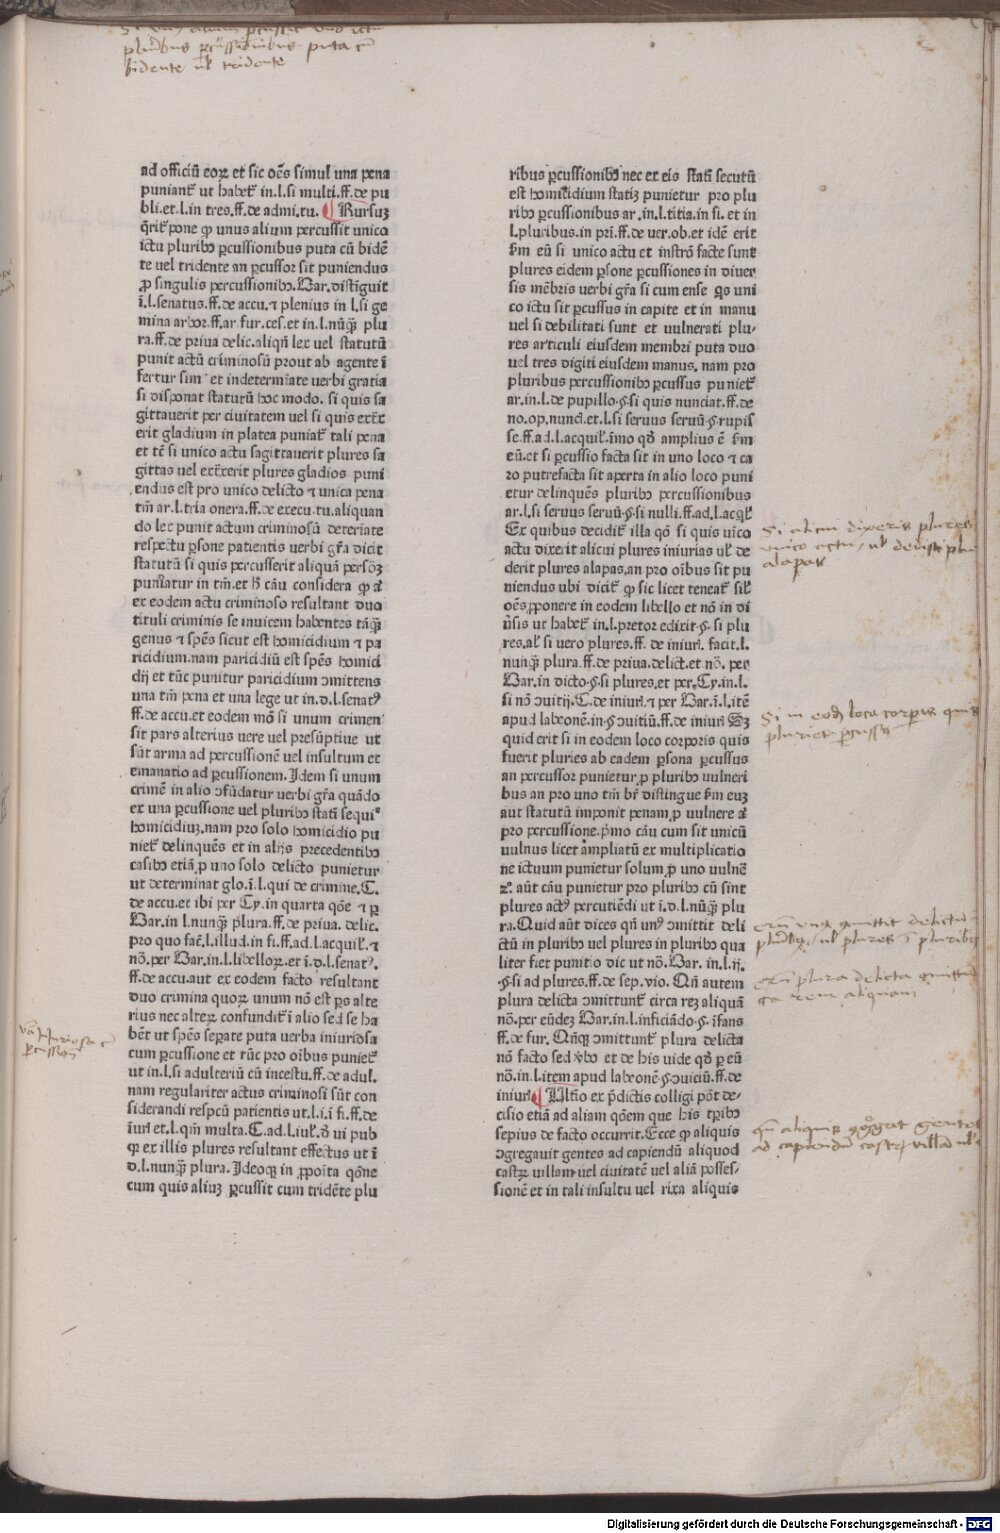 pluribus percussionibus puta cū
bidente ul' tridente
ad officiū eoꝝ et sic oēs simul una pena
puniant᷑ ut habet᷑ in.l.si multi.ff.de pu
bli.et.l.in tres.ff.de admi.tu. ¶ Rursuꝫ
q̄rit᷑ pone ꝙ unus alium percussit unico
ictu pluribꝰ ꝑcussionibus puta cū bidē
te uel tridente an ꝑcussor sit puniendus
ꝓ singulis percussionibꝰ. Bar. distīguit
ī.l.senatus.ff.de accu.⁊ plenius in l.si ge
mina arbor.ff.ar fur.ces.et in.l.nūq̄ꝫ plu
ra.ff.de priva delic.aliqn̄ lex uel statutū
punit actū criminosū prout ab agente ī
fertur sim et indetermiate uerbi gratia
si disponat statutū hoc modo. si quis sa
gittauerit per ciuitatem uel si quis extx
erit gladium in platea puniat᷑ tali pena
et tc̄ si unico actu sagittauerit plures sa
gittas uel extxerit plures gladios puni
endus est pro unico delicto ⁊ unica pena
tm̄ ar.l.tria onera.ff.de execu.tu.aliquan
do lex punit actum criminosū deteriate
respectu ꝑsone patientis uerbi gr̄a dicit
statutū si quis percusserit aliquā persōꝫ
puniatur in tm̄.et h̄ cāu considera ꝙ aꝉ
ex eodem actu criminoso resultant duo
tituli criminis se inuicem habentes tāq̄ꝫ
genus ⁊ spēs sicut est homicidium ⁊ pa
ricidium.nam paricidiū est spēs homici
dij et tūc punitur paricidium ↄmittens
una tm̄ pena et una lege ut in.d.l.senatꝰ
ff.de accu.et eodem mō si unum crimen
sit pars alterius uere uel presūptiue ut
sūt arma ad percussionē uel insultum et
emanatio ad ꝑcussionem. Idem si unum
crimē in alio ↄfūdatur uerbi gr̄a quādo
ex una ꝑcussione uel pluribꝰ statī sequiᷓ
homicidiuꝫ.nam pro solo homicidio pu
niet᷑ delinquēs et in alijs precedentibꝰ
casibꝰ etiā ꝓ uno solo delicto punietur
ut determinat glo.ī.l.qui de crimine.C.
de accu.et ibi per Cy.in quarta qōe ⁊ ꝑ
Bar.in l.nunq̄ꝫ plura.ff.de priva. delic.
pro quo fac̄.l.illud.in fi.ff.ad.l.acquil᷑.⁊
nō.per Bar.in.l.libelloꝝ.et ī.d.l.senatꝰ.
ff.de accu.aut ex eodem facto resultant
duo crimina quoꝝ unum nō est ꝑs alte
rius nec alteꝝ confundit᷑ ī alio sed se ha
bēt ut spēs seꝑate puta uerba iniuriosa
cum percussione et tūc pro oībus puniet᷑
ut in.l.si adulteriū cū incestu.ff.de adul.
nam regulariter actus criminosi sūt con
siderandi respcū patientis ut.l.i.ī fi.ff.de
īuri et.l.qm̄ multa.C.ad.l.iul᷑.d̄ ui pub
ꝙ ex illis plures resultant effectus ut ī
d.l.nunq̄ꝫ plura. Ideoqꝫ in ꝓpoīta qōne
cum quis aliuꝫ ꝑcussit cum tridēte plu
ribus ꝑcussionibꝰ nec ex eis statī secutū
est homicidium statiꝫ punietur pro plu
ribꝰ ꝑcussionibus ar.in.l.titia.in fi.et in
l.pluribus.in prī.ff.de uer.ob.et idē erit
ẜm eū si unico actu et instrō facte sunt
plures eidem ꝑsone ꝑcussiones in diuer
sis mēbris uerbi gr̄a si cum ense ꝗs uni
co ictu sit ꝑcussus in capite et in manu
uel si debilitati sunt et uulnerati plu-
res articuli eiusdem membri puta duo
uel tres digiti eiusdem manus. nam pro
pluribus percussionibꝰ ꝑcussus puniet᷑
ar.in.l.de pupillo.§.si quis nunciat.ff.de
no.op.nunci.et.l.si seruus seruū.§.rupis
se.ff.ad.l.acquil᷑.īmo qd̄ amplius ē ẜm
eū.et si ꝑcussio facta sit in uno loco ⁊ ca
ro putrefacta sit aperta in alio loco puni
etur delinquēs pluribꝰ percussionibus
ar.l.si seruus seruū.§.si nulli.ff.ad.l.acq᷑l᷑
Ex quibus decidit᷑ illa qō si quis uico
actu dixerit alicui plures iniurias ul᷑ de
derit plures alapas.an pro oībus sit pu
niendus ubi dicit᷑ ꝙ sic licet teneat᷑ sil᷑
oēs ꝓponere in eodem libello et nō in di
ūsis ut habet᷑ in.l.pretor edixit.§.si plu
res.al᷑ si vero plures.ff. de iniuri. facit.l.
nunq̄ꝫ plura.ff.de priua.delict.et nō. per
Bar.in dicto.§.si plures.et per.Cy.in.l.
si nō ↄuitij.C.de iniuri.⁊ per Bar.ī.l.itē
apud labeonē.in.§.ↄuitiū.ff.de iniuri Sꝫ
quid erit si in eodem loco corporis quis
fuerit pluries ab eadem ꝑsona ꝑcussus
an percussor punietur ꝓ pluribꝰ uulneri
bus an pro uno tm̄ br̄ distingue ẜm euꝫ
aut statutū imponit penam ꝓ uulnere aꝉ
pro percussione.p̄mo cāu cum sit unicū
uulnus licet ampliatū ex multiplicatio
ne ictuum punietur solum ꝓ uno uulnē
2°. aūt cāu punietur pro pluribꝰ cū sint
plures actꝰ percutiēdi ut ī.d.l.nūq̄ꝫ plu
ra. Quid aūt dices qn̄ unꝰ ↄmittit deli
ctū in pluribꝰ uel plures in pluribꝰ qua
liter fiet punitio dic ut nō. Bar. in.l.ij.
§.si ad plures.ff.de sep.vio. Qn̄ autem
plura delicta ↄmittunt᷑ circa reꝫ aliquā
nō.per eūdeꝫ Bar.in.l.inficiādo.§.īfans
ff.de fur. Qn̄qꝫ ↄmittunt᷑ plura delicta
nō facto sed v̄bo et de his uide qd̄ ꝑ eū
nō.in.l.item apud labeonē.§.ↄuiciū.ff.de
iniuri ¶ Ultīo ex p̄dictis colligi pōt de-
cisio etiā ad aliam qōem que his tꝑibꝰ
sepius de facto occurrit. Ecce ꝙ aliquis
ↄgregauit gentes ad capiendū aliquod
castꝝ uillam uel ciuitatē uel aliā posses-
sionē et in tali insultu uel rixa aliquis
Si alicui dixeris plures
unico actu / ul' dedisti plures
alapas
Si in eodem loco corporis quis
pluries percussit
qn̄ unus committit delictum
in pluribus / ul' plures ī pluribus
qn̄ plura delicta committunt
circa rem aliquam
qn̄ aliquis congregat gentes
ad capiendum castrum villam ul'
verba iniuriosa cum
percussione
Digitalisierung gefördert durch die Deutsche Forschungsgemeinschaft - DFG